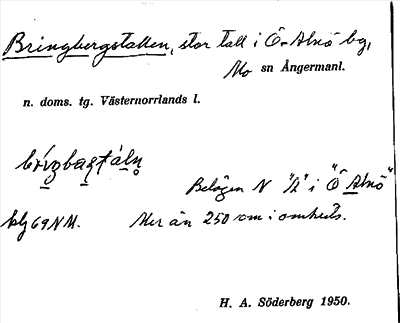 Bringbergstallen, stor tall i Ö-Alnö by,
Mo sn Ångermanl.
n. doms. tg. Västernorrlands l.
Belägen N "/2" i "Ö Alnö"
blg 69 NM. Mer än 250 cm i omkrets.
H. A. Söderberg 1950.